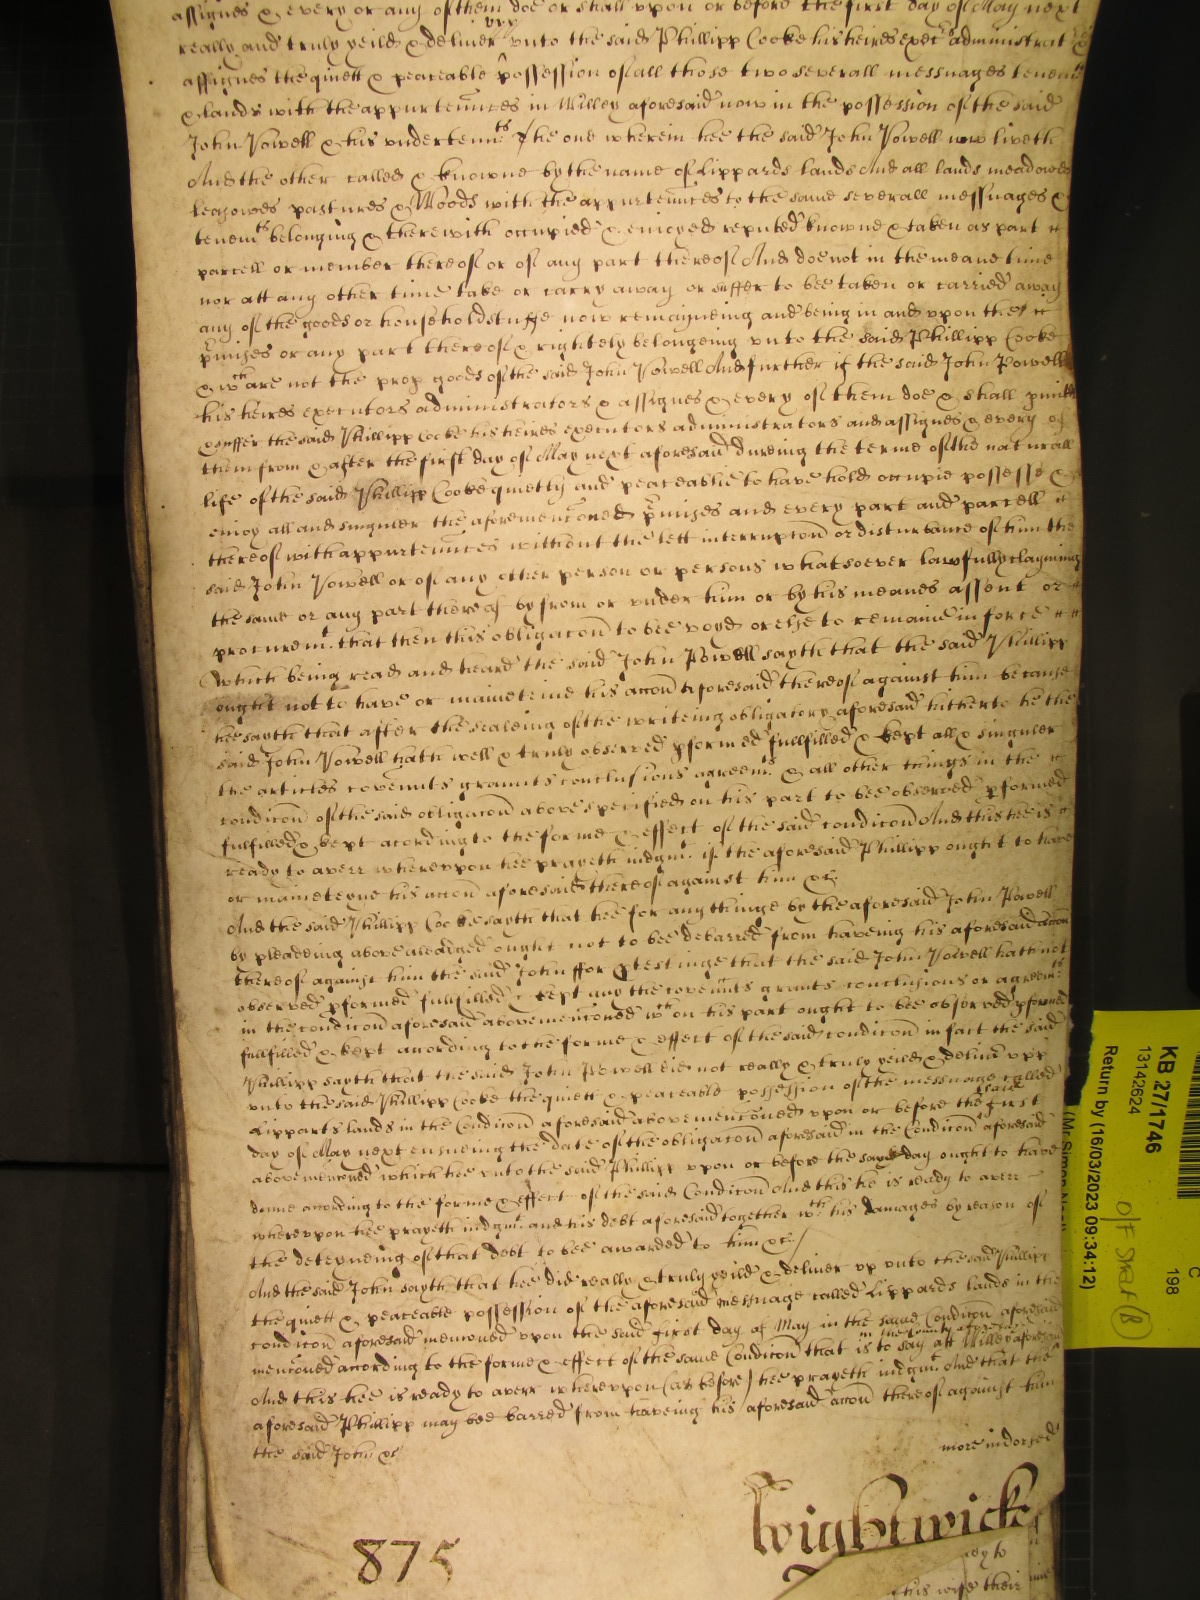 assignes & every or any of them doe or shall vpon or before the first day of May next
really and truly yeild & deliver vpp vnto the said Phillipp Cooke his heires execrs administrat
assignes the quiett & peaceable possession of all those two severall messuages tenemts
& lands with the appurtennces in Willey aforesaid now in the possession of the said
John Powell & his vndertennts The one wherein hee the said John Powell now liveth
And the other called & knowne by the name of Lippards lands And all lands meadowes
leasowes pastures & Woods with the appurtennces to the same severall messuages &
tenemts belonging & therewith occupied & enioyed reputed knowne & taken as part
parcell or member thereof or of any part thereof And doe not in the meane time
nor att any other time take or carry away or suffer to bee taken or carried away
any of the goods or householdstuffe now remayneing and being in and vpon the
pmises or any part thereof & rightely belongeing vnto the said Phillipp Cooke
& wch are not the prop goods of the said John Powell And further if the said John Powell
his heires executors administrators & assignes & every of them doe & shall pmitt
& suffer the said Phillipp Cooke his heires executors administrators and assignes & every of
them from & after the first day of May next aforesaid dureing the terme of the naturall
life of the said Phillipp Cooke quiettly and peaceablie to have hold occupie possesse &
enioy all and singuler the aforemenconed pmises and every part and parcell
thereof with appurtennces without the lett interrupcon or disturbance of him the
said John Powell or of any other person or persons whatsoever lawfully clayming
the same or any part thereof by from or vnder him or by his meanes assent or
procuremt. that then this obligacon to bee voyd or else to remaine in force
Which being read and heard the said John Powell sayth that the said Phillipp
ought not to have or mainteine his accon aforesaid thereof against him because
hee sayth that after the sealeing of the writeing obligatory aforesaid hitherto he the
said John Powell hath well & truly observed pformed fullfilled & kept all & singuler
the articles covennts graunts conclusions agreemts & all other things in the
condicon of the said obligacon above specified on his part to bee observed pformed
fulfilled & kept acording to the forme & effect of the said condicon And this hee is
ready to averr wherevpon hee prayeth iudgmt. if the aforesaid Phillipp ought to have
or mainteyne his accon aforesaid thereof against him &c.
And the said Phillipp Cooke sayth that hee for any thinge by the aforesaid John Powell
by pleadeing above aleadged ought not to bee debarred from haveing his aforesaid accon
thereof against him the said John ffor ptestinge that the said John Powell hath not
observed pformed fullfilled & kept any the covennts grants conclusions or agreemts
in the condicon aforesaid abovemenconed wch on his part ought to bee observed pformed
fullfilled & kept acording to the forme & effect of the said condicon in fact the said
Phillipp sayth that the said John Powell did not really & truly yeild & deliver vpp
vnto the said Phillipp Cooke the quiett & peaceable possession of the messuage called
Lipparts lands in the Condicon aforesaid abovemenconed vpon or before the said first
day of May next ensueing the date of the obligacon aforesaid in the Condicon aforesaid
abovemenconed which hee vnto the said Phillipp vpon or before the same day ought to have
donne acording to the forme & effect of the said Condicon And this he is ready to averr
wherevpon hee prayeth iudgmt. and his debt aforesaid together wth his damages by reason of
the deteyneing of that debt to bee awarded to him &c./
And the said John sayth that hee did really & truly yeild & deliver vp vnto the said Phillipp
the quiett & peaceable possession of the aforesaid messuage called Lippards lands in the
condicon aforesaid menconed vpon the said first day of May in the same Condicon aforesaid
menconed acording to the forme & effect of the same Condicon that is to say att Willey aforesaid in the County aforesaid
And this hee is ready to averr wherevpon (as before) hee prayeth iudgmt And that the
aforesaid Phillipp may bee barred from haveing his aforesaid accon thereof against him
the said John &c
more indorsed
Wightwicke
875
his wife their
KB 27/1746
13142624
Return by (16/03/2023 09:34:12)
C
198